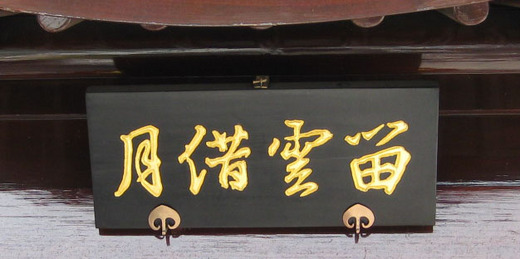 留雲借月